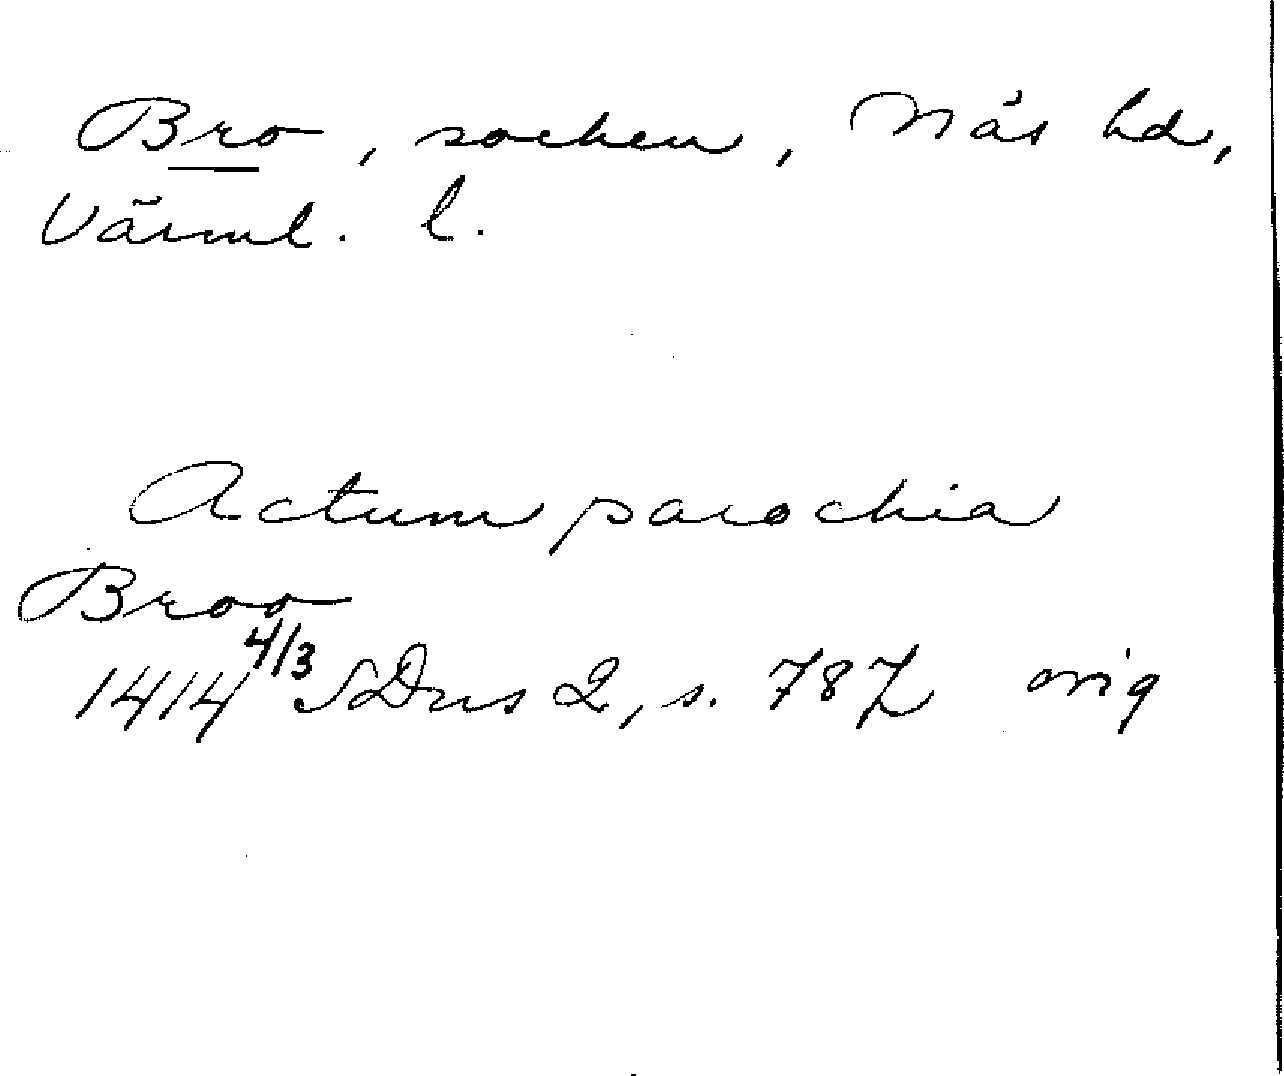 Bro, socken, Näs hd,
Värml. l.
Actum parochia
Broo
1414 4/3 SDns 2, s. 787 orig